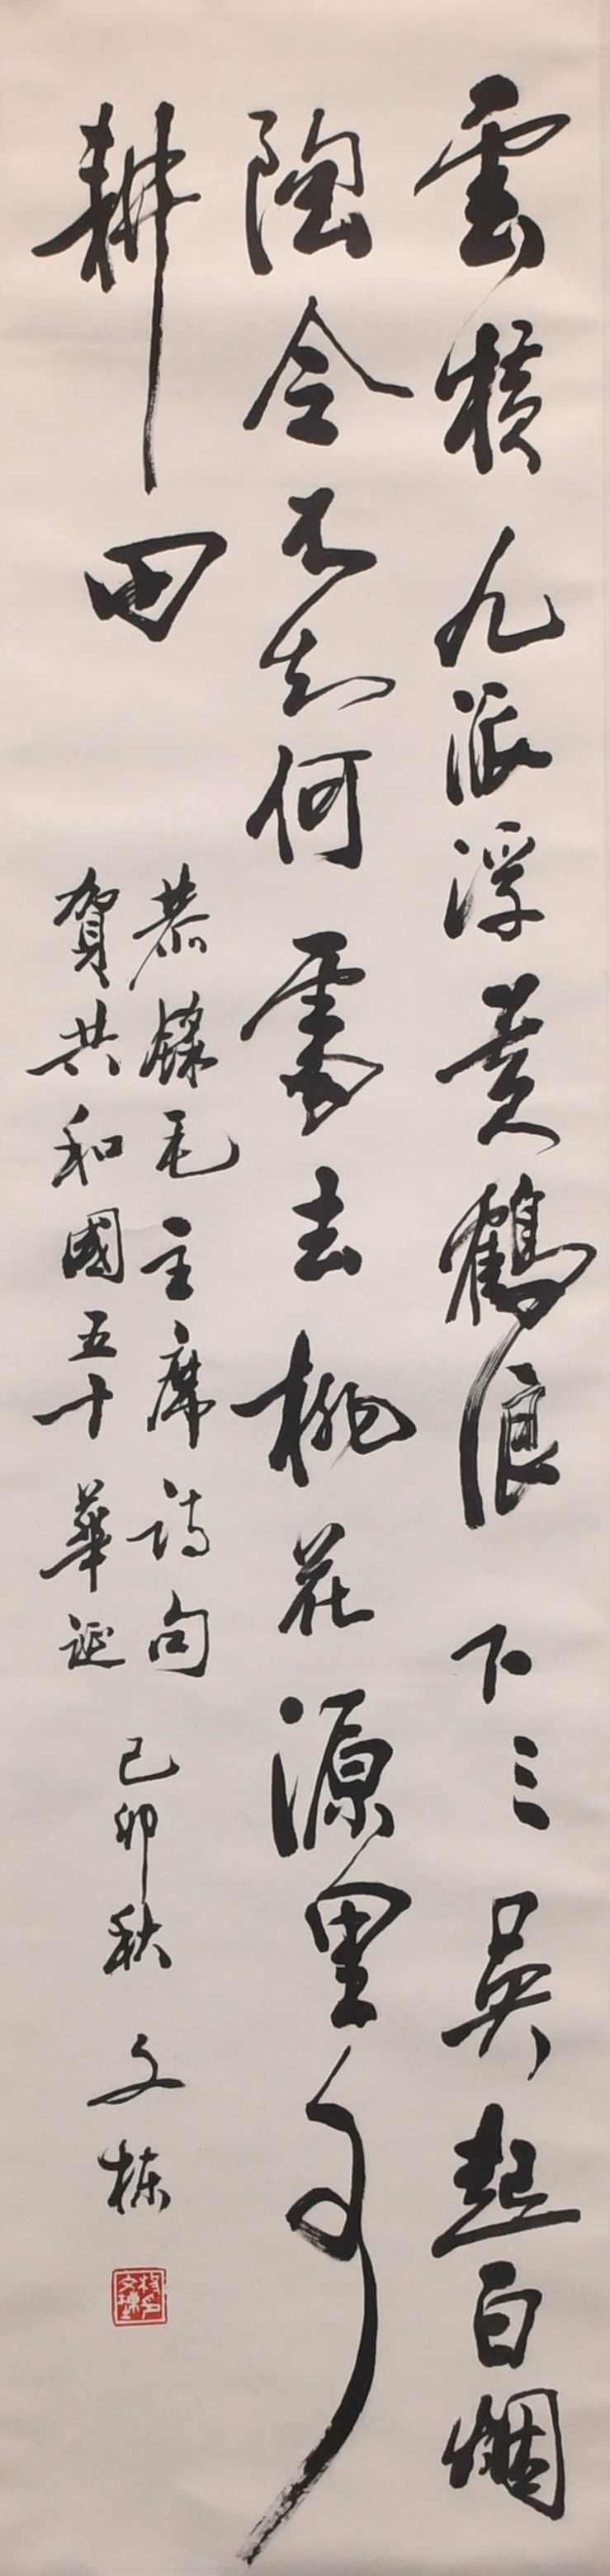 雲橫九派浮黃鶴浪下三吳起白烟
陶令不知何處去桃花源里可
耕田
恭錄毛主席詩句
賀共和國五十華誕
己卯秋
文棟